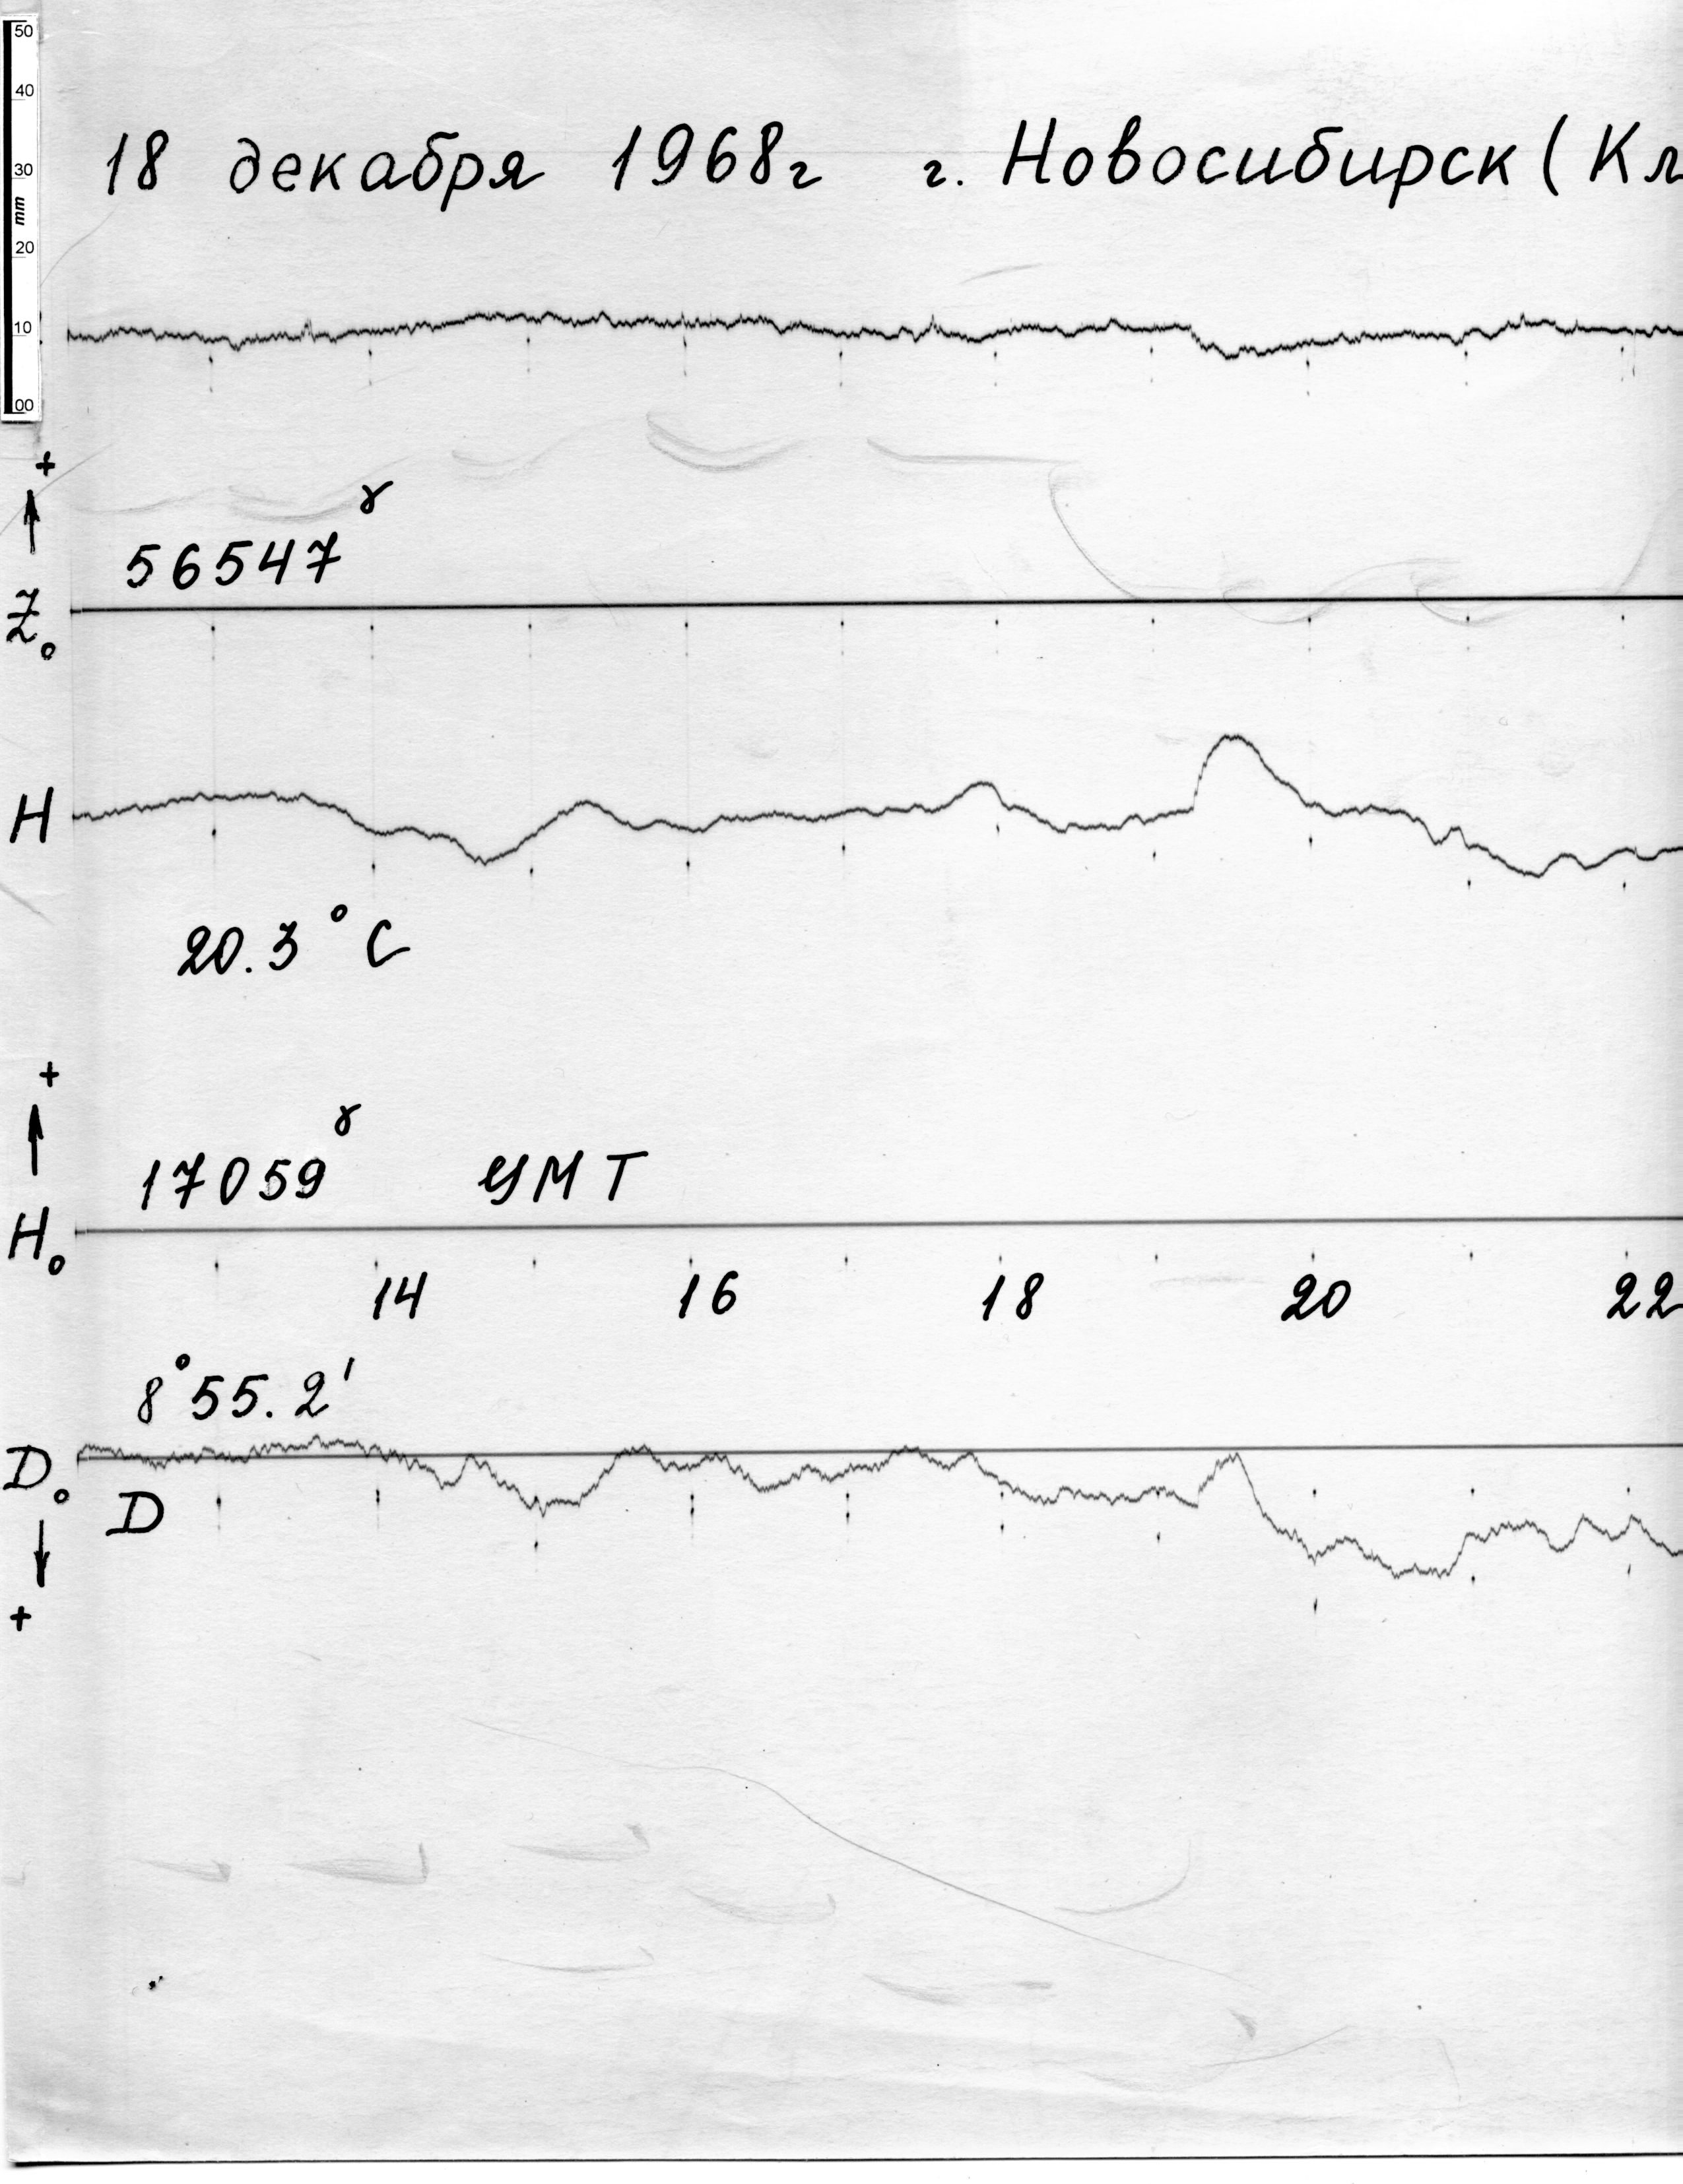 50
40
30
mm
20
10
00
18 декабря 1968г г. Новосибирск (Кл
+
56547γ
Z₀
H
20.3°C
+
17059γ УМТ
H₀
14 16 18 20 22
8°55.2'
D₀
D
+